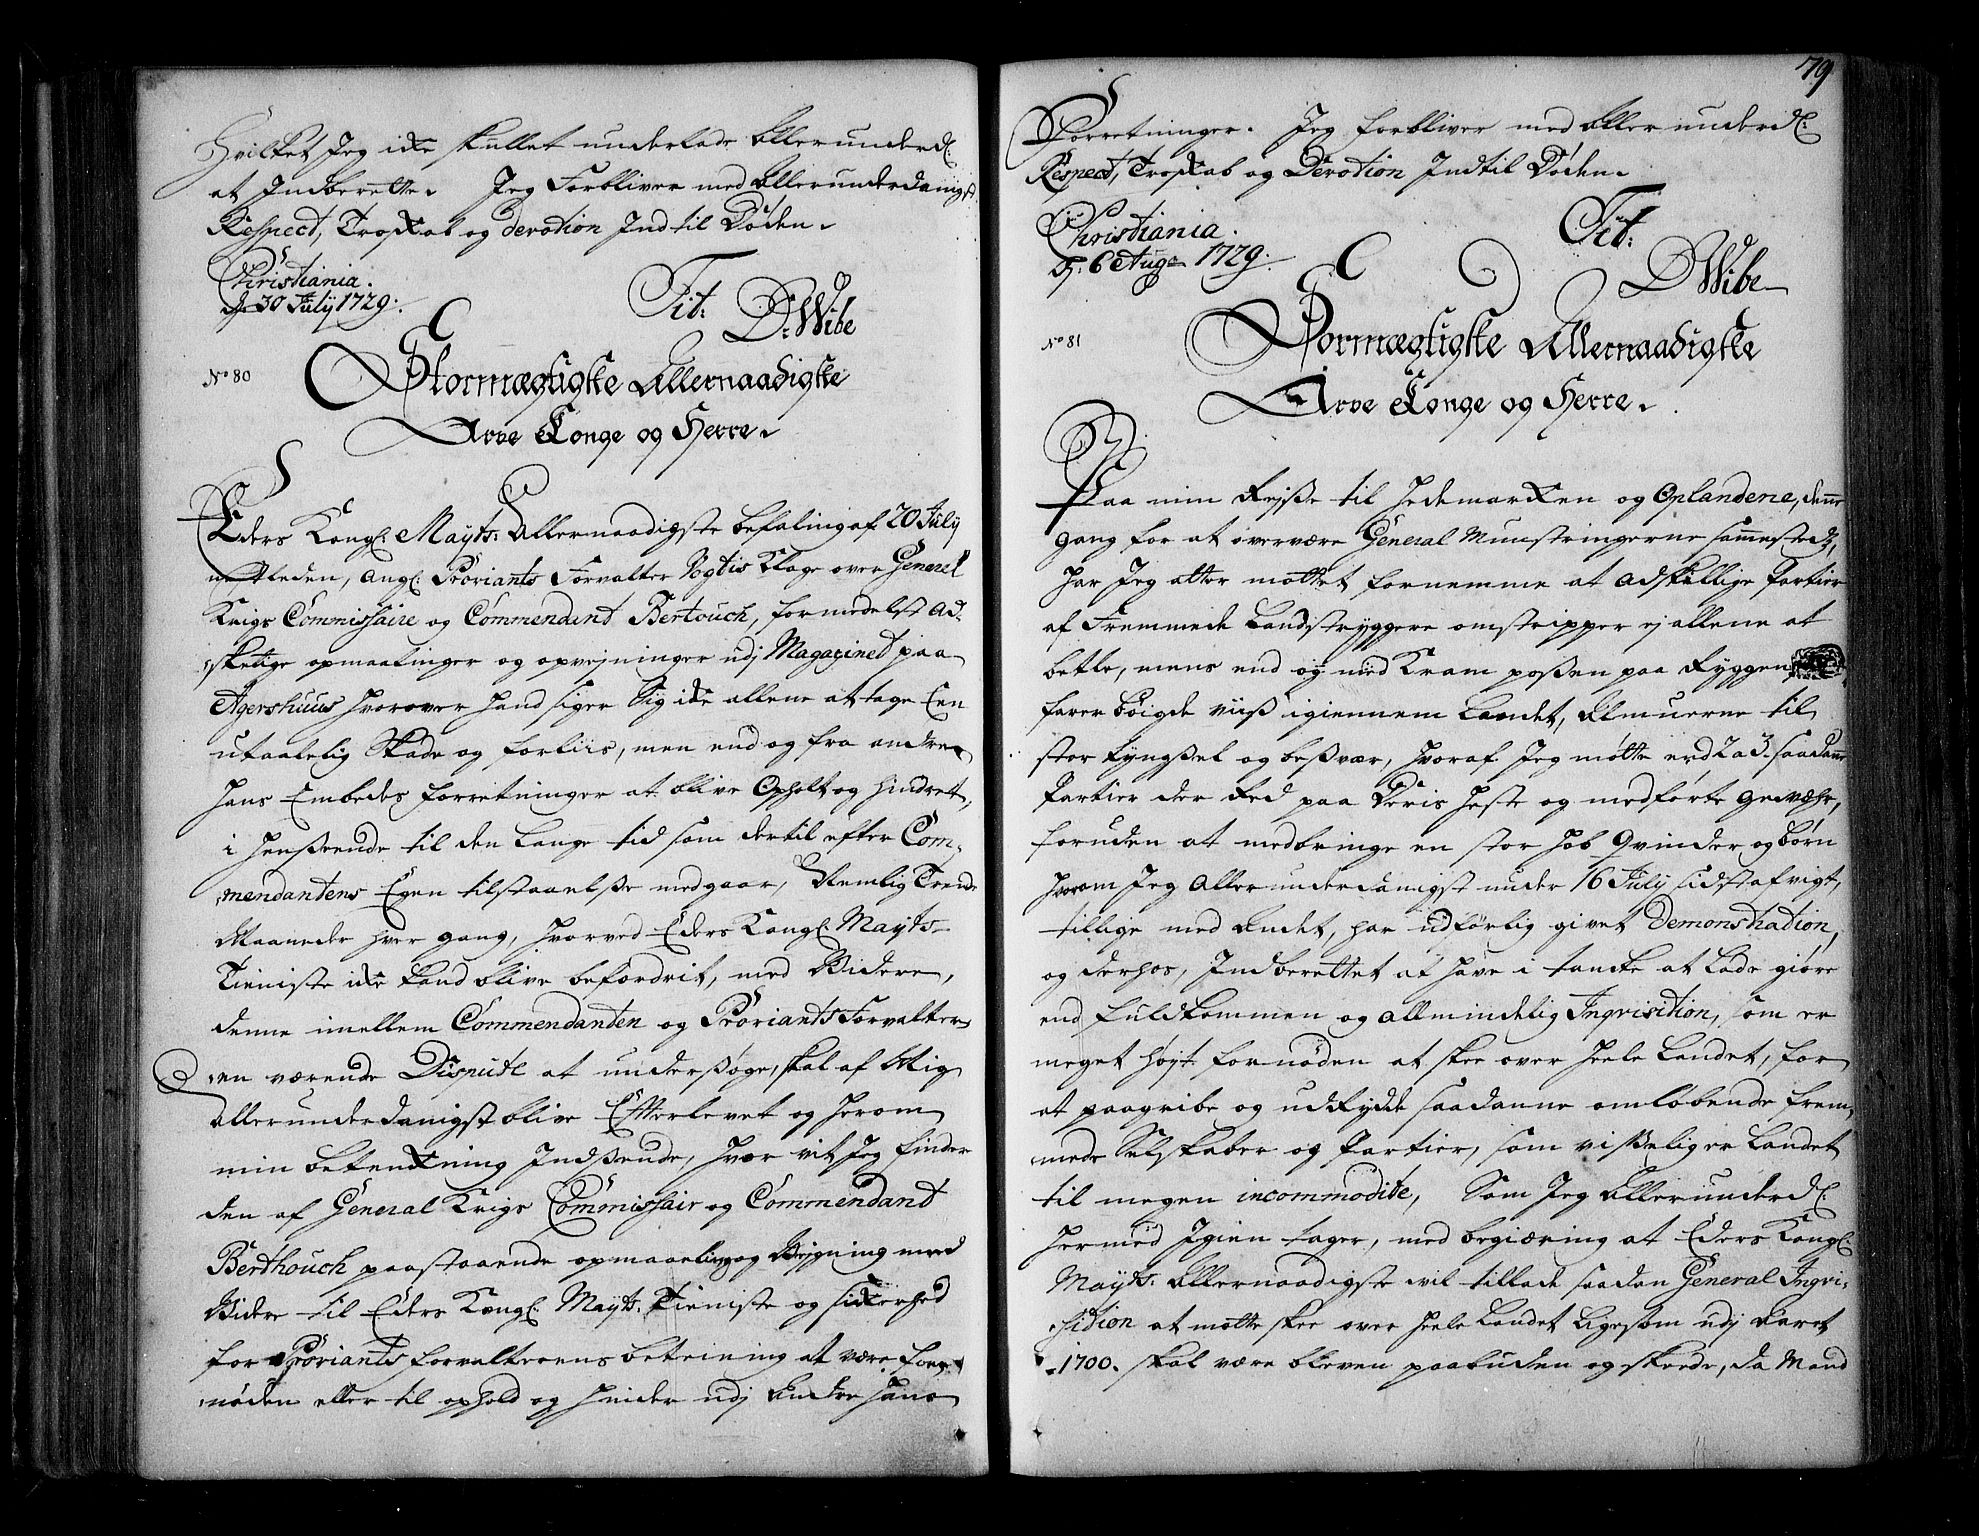 Hvilket Jeg icke skullet underlade allerunderd:
at Indberette. Jeg Forbliver med allerunderdanigst
Respect, Troskab og devotion Ind til Døden.
Christiania.
d. 30 July 1729.
Tit: D: Wibe
No 80
Stormægtigste Allernaadigste
Arve Konge og Herre.
Eders Kongl: Mayts: Allernaadigste befaling af 20 July
næstleden, angl: Proviants Forvalter Vogtis Klage over General
Krigs Commissaire og Commendant Bertouch, formedelst ad-
skelige opmaalinger og opvejninger udj Magazinet paa
Agershuus hvorover hand siger Sig icke allene at tage Een
utaalelig Skade og forliis, men end og fra andre
hans Embedes forretninger at blive Opholt og hindret,
i henseende til den Lange tid som dertil efter Com-
mendantens Egen tilstaaelse medgaar, Nemlig Trende
Maaneder hver gang, hvorved Eders Kongl: Mayts
Tieniste icke kand blive befordrit, med Videre,
denne imellem Commendanten og Proviants Forvalter-
en værende Dispute at undersøge, skal af Mig
allerunderdanigst blive Efterlevet og herom
min betenkning Indsende, hvor vit Jeg finder
den af General Krigs Commissair og Commendant
Berthouch paastaaende opmaaling og Vejgning med
Videre til Eders Kongl: Mayts: Tieniste og sickerhed
for Proviants forvalterens betiening at være for-
nøden eller til ophold og hinder udj Andre hans
79
Forretninger. Jeg forbliver med allerunderd:
Respect, Troskab og Devotion Indtil Døden.
Christiania.
d: 6 Aug: 1729.
Tit:
D Wibe
No 81
Stormægtigste Allernaadigste
Arve Konge og Herre.
Paa min Rejse til Hedemarken og Oplandene, denne
gang for at overvære General Munstringerne sammesteds,
har Jeg atter mottet fornemme at adskillige Partier
af Fremmede Landstryggere omstripper ej allene at
betle, mens end og med Kram posen paa Ryggen
farer bøigde viis igiennem Landet, Almuerne til
stor tyngsel og besvær, hvoraf Jeg møtte end 2 a 3 saadanne
Partier der Red paa Deris heste og medførte gevæhr,
foruden at medbringe en stor hob Qvinder og børn
hvorom Jeg Allerunderdanigst under 16 July sidst afvigt,
tillige med Andet, har udførlig givet Demonstration,
og derhos, Indberettet at have i tancke at lade giøre
end fuldkommen og allmindelig Inqvisition, som er
meget høyt fornøden at skee over heele Landet, for
at paagribe og udrydde saadanne omløbende frem-
mede Selskaber og Partier, som visselig er Landet
til megen incommodite, Som Jeg Allerunderd:
hermed Igien tager, med begiæring at Eders Kongl:
Mayts: Allernaadigste vil tillade saadan General Inqvi-
sition at motte skee over heele Landet Ligesom udj Aaret
1700. skal være bleven paabuden og skeede, da Mand